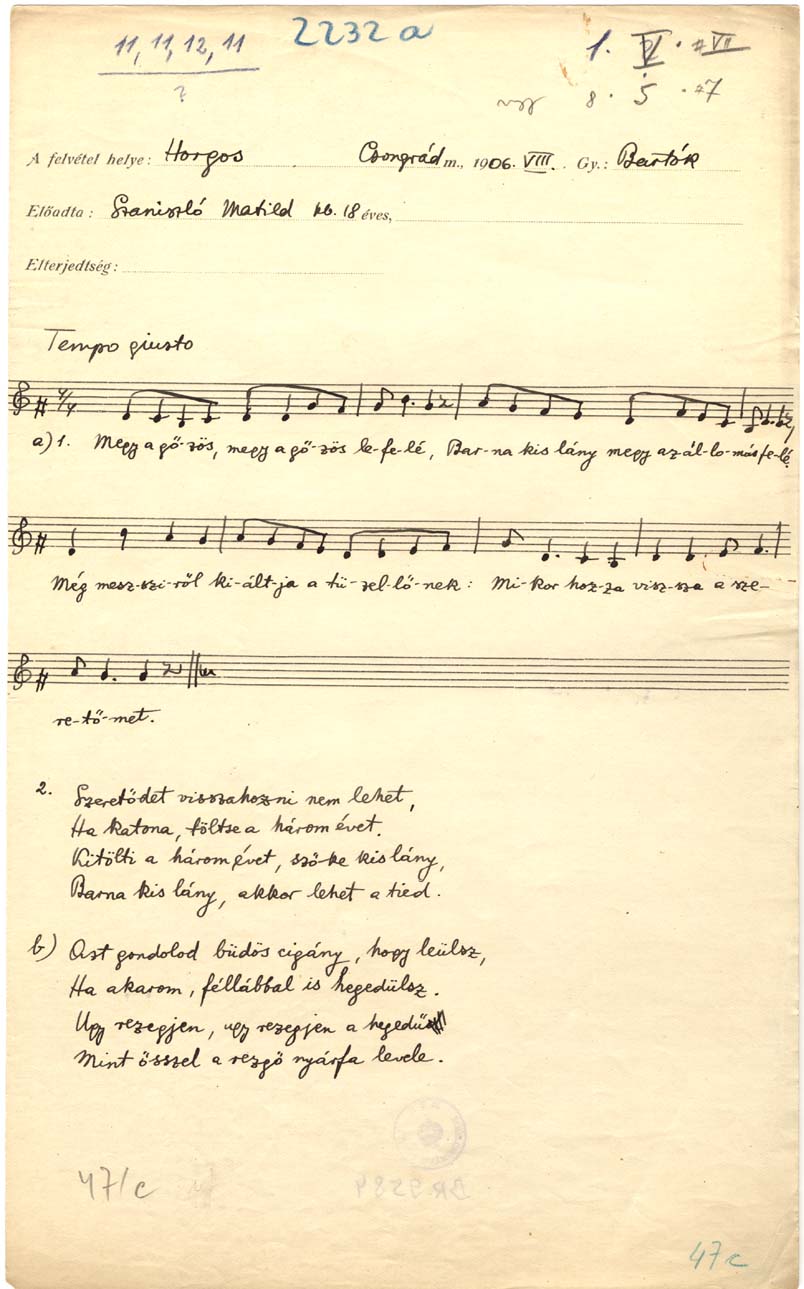 11, 11, 12, 11
?
2232 a
8 · 5 · #7
A felvétel helye: Horgos Csongrád m., 1906. VIII. Gy.: Bartók
Előadta: Szaniszló Matild kb. 18 éves,
Elterjedtség:
Tempo giusto
4/4
a) 1. Megy a gő-zös, megy a gő-zös le-fe-lé, Bar-na kis lány megy az ál-lo-más fe-lé.
Még mesz-szi-ről ki-ált-ja a tü-zel-lő-nek: Mi-kor hoz-za visz-sza a sze-
re-tő-met.
2. Szeretődet visszahozni nem lehet,
Ha katona, töltse a három évet.
Kitölti a három évet, szőke kislány,
Barna kis lány, akkor lehet a tied.
b) Azt gondolod büdös cigány, hogy leülsz,
Ha akarom, féllábbal is hegedülsz.
Ugy rezegjen, ugy rezegjen a hegedű
Mint ősszel a rezgő nyárfa levele.
BR 9589
47/c
47 c